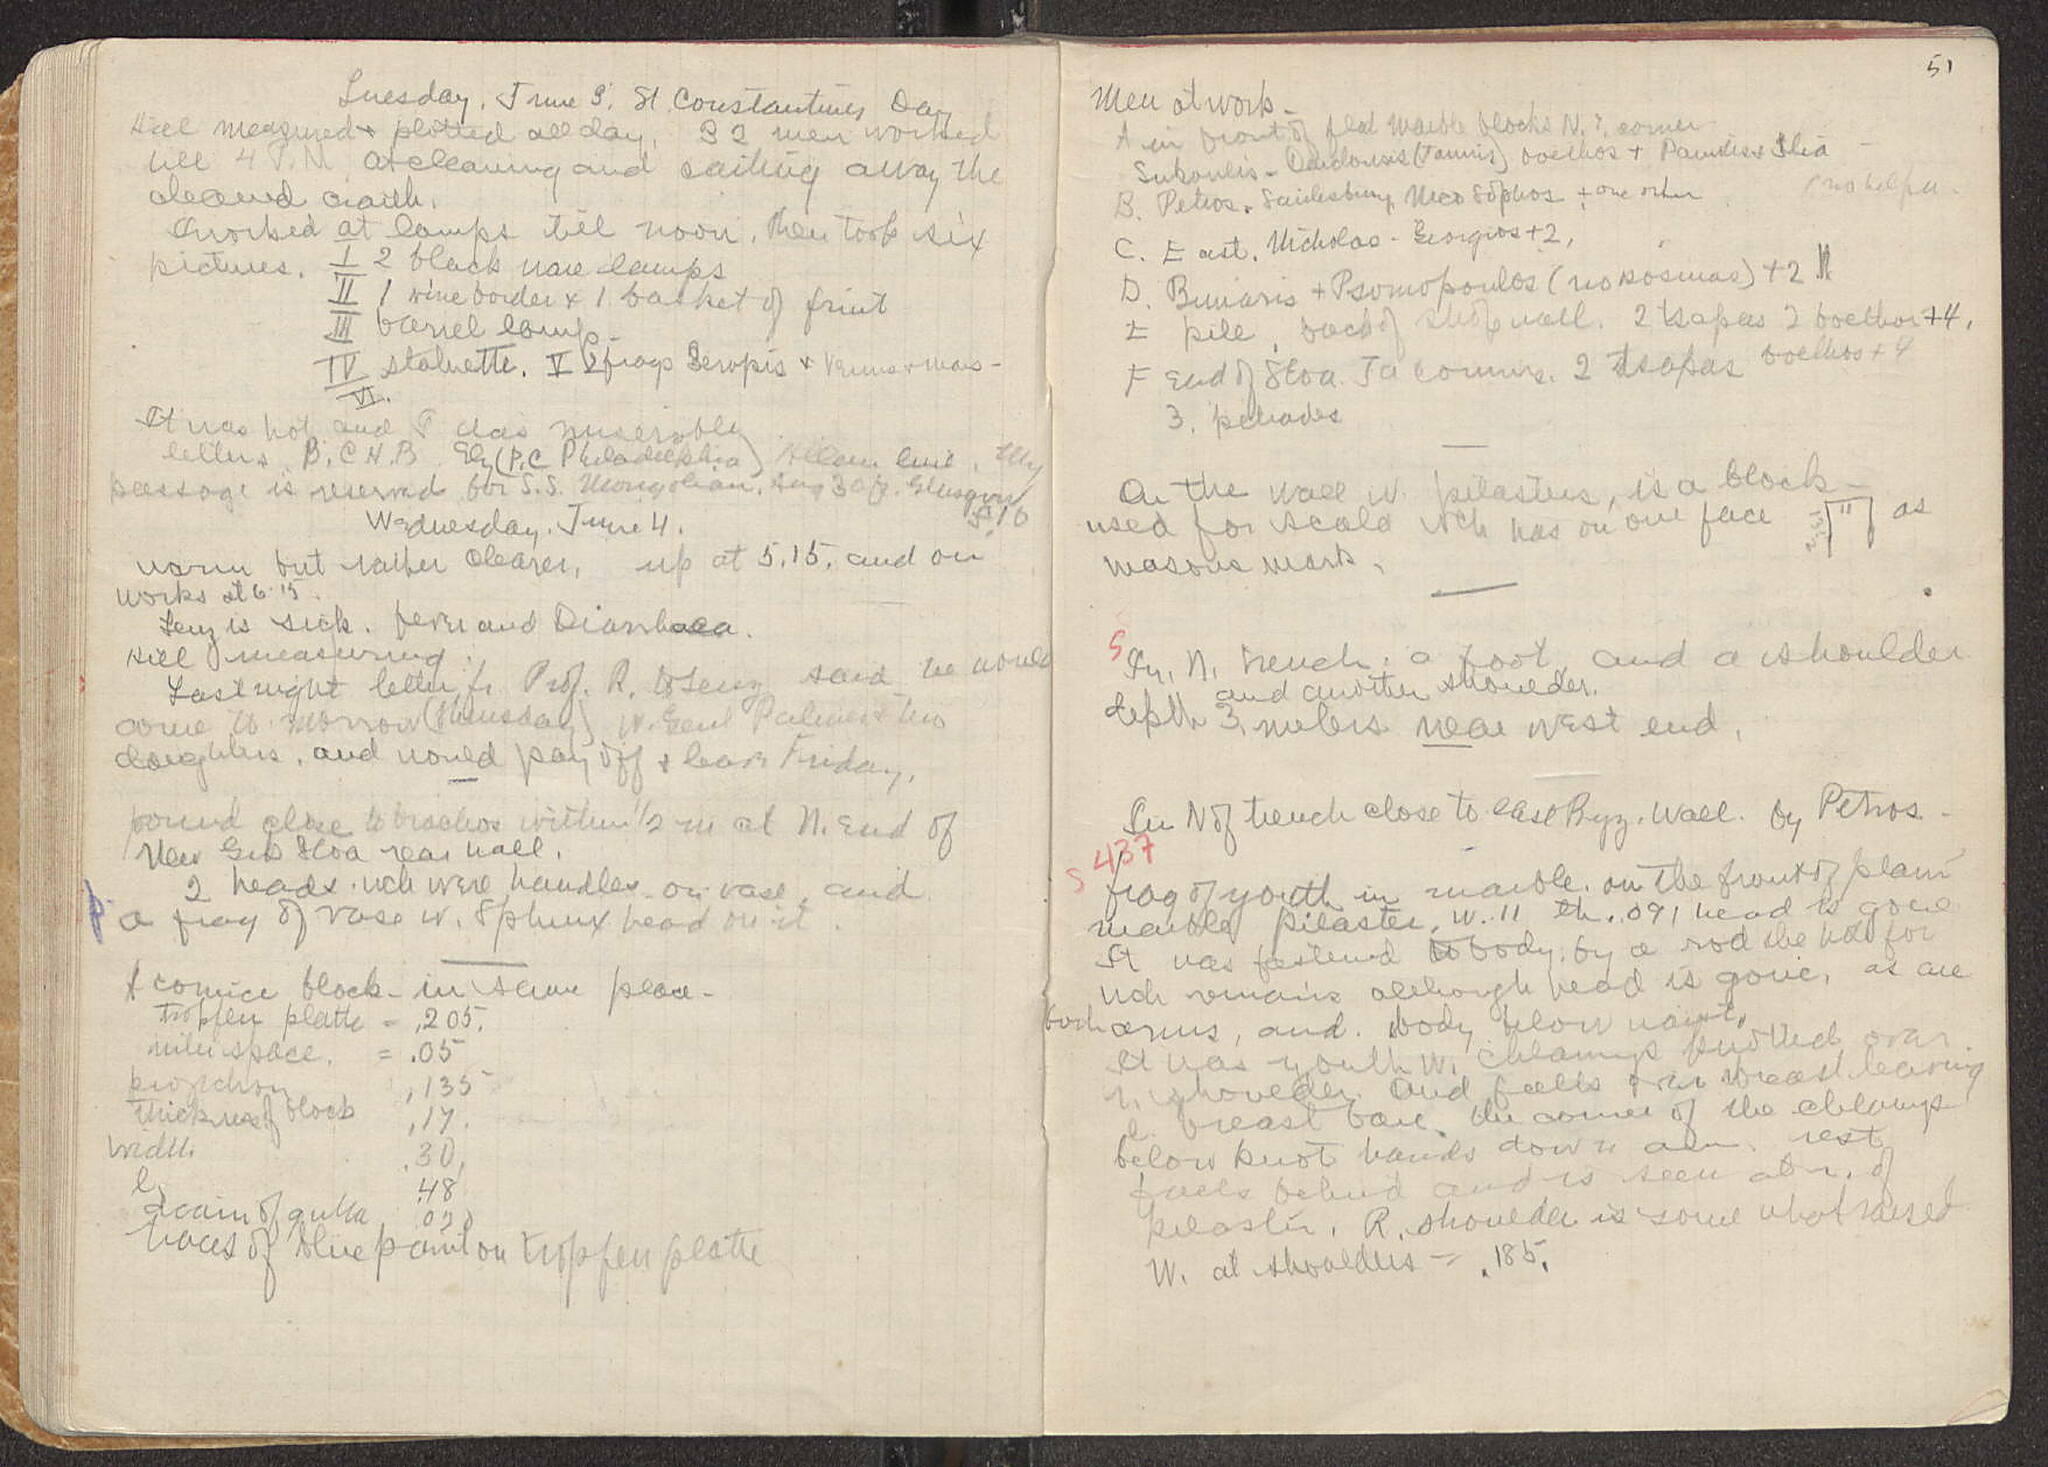 Tuesday. June 3. St. Constantine's Day
Hill measured & plotted all day. 32 men worked
till 4 P.M. at cleaning and carting away the
cleared earth.
I worked at lamps till noon, then took six
pictures. I 2 black ware lamps
II 1 vine border & 1 basket of fruit
III barrel lamp.
IV statuette. V 2 frags Serapis & Venus & Mars -
VI.
It was hot and I was miserable
letters B.C.H.B. Ely (P.C Philadelphia) Allan line. My
passage is reserved for S.S. Mongolian. Aug 30 fr. Glasgow
£10
Wednesday. June 4.
warm but rather clearer. up at 5.15. and on
works at 6.15.
Lenz is sick. fever and Diarrhaea.
Hill measuring.
Last night letter fr. Prof. R. to Lenz said he would
come to-morrow (Thursday) w. Genl Palmer & two
daughters. and would pay off & leave Friday.
Found close to brachos within 1/2 m at N. End of
New Grk Stoa rear wall.
2 heads. wch were handles on vase, and
p. a frag of vase w. Sphinx head on it.
A cornice block - in same place -
Tropfen platte = .205.
inter space. = .05
projection .135
thickness of block .17.
width. .30.
l. .48
diam of gutta .02
traces of blue paint on tropfen platte
51
Men at work -
A in front of flat marble blocks N. corner
boethos +
B. Petros. Nico Sophos + one other
C. East. Nicholas - Georgios + 2.
D. + Psomopoulos (no Kosmas) + 2
E pile, back of shop wall. 2 tsapas 2 boethoi + 4.
F End of Stoa. 2 tsapas boethos + 4
3.
On the wall w. pilasters, is a block -
used for scala wch has on one face as
masons mark.
S In. N. trench. a foot, and a shoulder
and another shoulder.
depth 3. meters near west end.
In N of trench close to East Byz. wall. by Petros -
S 437
frag of youth in marble. on the front of plain
marble pilaster. w. .11 th. .091 head is gone
It was fastened to body. by a rod the hole for
wch remains although head is gone, as are
both arms, and. body below waist.
It was youth w. chlamys knotted over
r. shoulder. and falls over breast leaving
l. breast bare. the corner of the chlamys
below knot hands down arm. rest
falls behind and is seen at r. of
pilaster. R. shoulder is some what raised
W. at shoulders = .185.